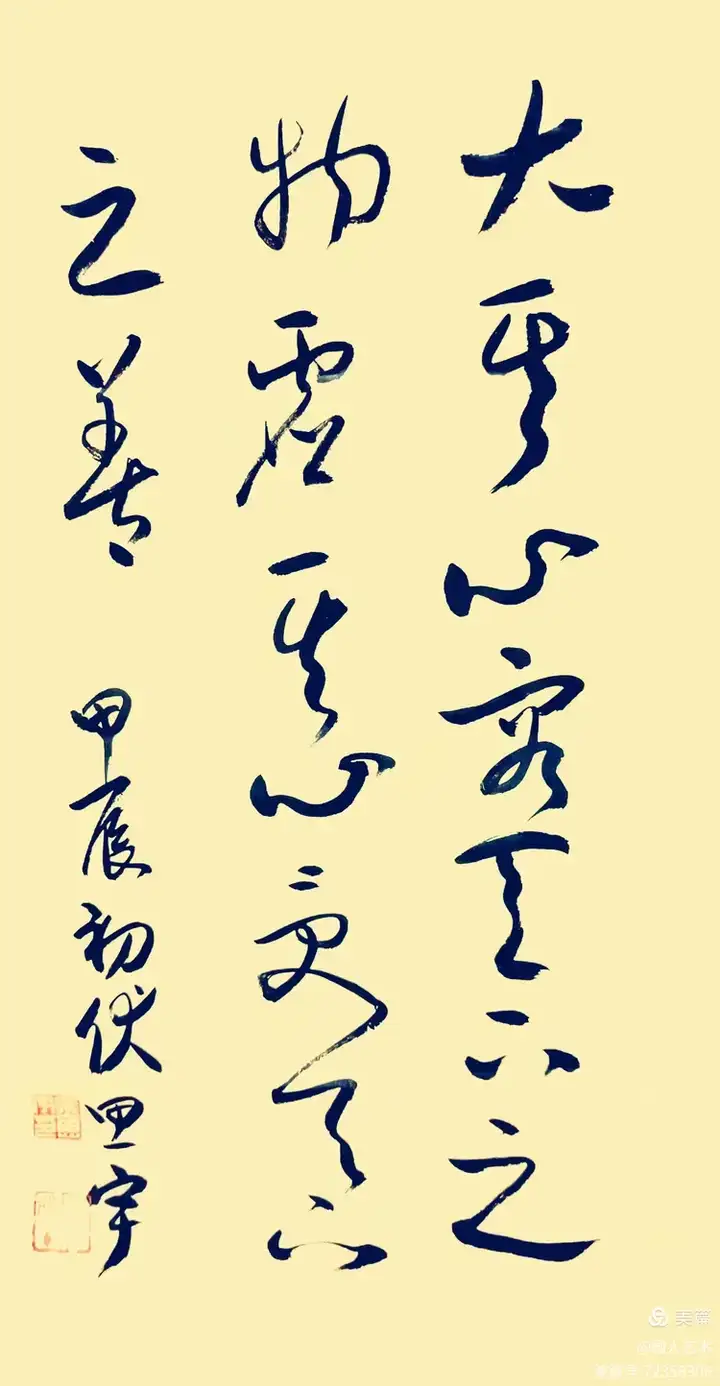 大其心容天下之
物虚其心受天下
之善
甲辰初伏思宇
美篇